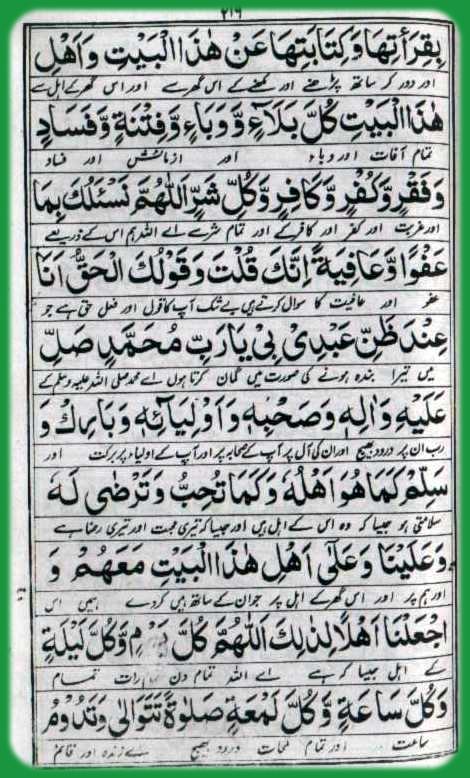 ٢١٦
بِقِرَأَتِهَا وَكِتَابَتِهَا عَنْ هٰذَا الْبَيْتِ وَاَهْلِ
اور دور کر ساتھ پڑھنے اور لکھنے کے اس گھر سے اور اس گھر کے اہل سے
هٰذَا الْبَيْتِ كُلَّ بَلَآءٍ وَّوَبَاءٍ وَّفِتْنَةٍ وَّفَسَادٍ
تمام آفات اور وباء اور ازمائش اور فساد
وَفَقْرٍ وَّكُفْرٍ وَّكَافِرٍ وَّكُلِّ شَرٍّ اَللّٰهُمَّ نَسْئَلُكَ بِمَا
اور غربت اور کفر اور کافر کے اور تمام شر سے اے اللہ ہم اس کے ذریعے
عَفْوًا وَّعَافِيَةً اِنَّكَ قُلْتَ وَقَوْلُكَ الْحَقُّ اَنَا
عفو اور عافیت کا سوال کرتے ہیں بے شک آپ کا قول اور فعل حق ہے جو
عِنْدَ ظَنِّ عَبْدِىْ بِىْ يَارَبِّ مُحَمَّدٍ صَلِّ
میں تیرا بندہ ہونے کی صورت میں گمان کرتا ہوں اے محمد صلی اللہ علیہ وسلم کے
عَلَيْهِ وَاٰلِهٖ وَصَحْبِهٖ وَاَوْلِيَائِهٖ وَبَارِكْ وَ
رب ان پر درود بھیج اور ان کی آل پر آپ کے صحابہ پر اور آپ کے اولیاء پر برکت اور
سَلِّمْ كَمَا هُوَ اَهْلُهٗ وَكَمَا تُحِبُّ وَتَرْضٰى لَهٗ
سلامتی ہو جیسا کہ وہ اس کے اہل ہیں اور جیسا کہ تیری محبت اور تیری رضا ہے
وَعَلَيْنَا وَعَلٰى اَهْلِ هٰذَا الْبَيْتِ مَعَهُمْ وَ
اور ہم پر اور اس گھر کے اہل پر جو ان کے ساتھ ہیں کر دے ہمیں اس
اجْعَلْنَا اَهْلًا لِذٰلِكَ اَللّٰهُمَّ كُلَّ يَوْمٍ وَّكُلَّ لَيْلَةٍ
کے اہل جیسا کہ ہے اے اللہ تمام دن رات تمام
وَّكُلَّ سَاعَةٍ وَّكُلَّ لَمْعَةٍ صَلٰوةً تَتَوَالٰى وَتَدُوْمُ
ساعت اور تمام لمحات درود بھیج سے زندہ اور قائم